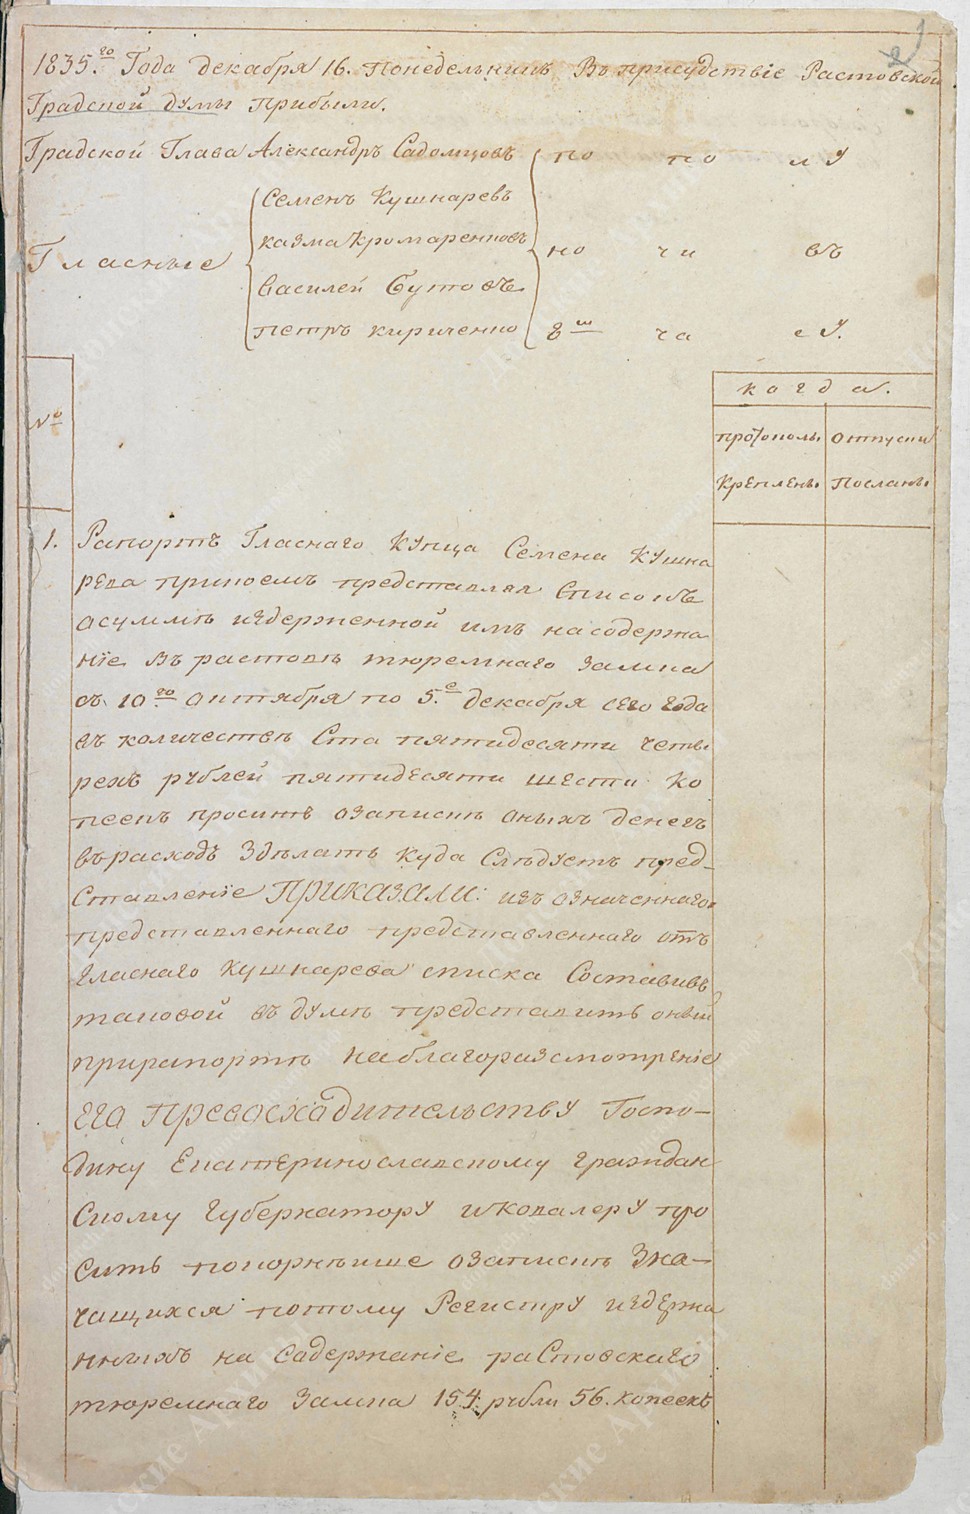 2
1835.го Года декабря 16. Понедельникъ Въ присудствіе Растовской
Градской думы прибыли.
Градской Глава Александръ Садомцовъ по по лу
Семенъ Кушнаревъ
казма Кромаренковъ
Гласные но чи въ
Василей Бутовъ
петръ кириченко 8ш ча су.
когда.
№
протоколы отпуски
Крепленъ Посланы
1. Рапортъ Гласнаго купца Семена Кушна
рева приноемъ представляя Списокъ
асуммѣ издерженной имъ насодержа
ніе въ растовѣ тюремнаго замка
съ 10го октября по 5.е декабря сего года
въ количествѣ Ста пятидесяти четы
рехъ рублей пятидесяти шести ко
пеекъ проситъ озаписѣ оныхъ денегъ
върасходъ Здѣлать куда Слѣдуетъ пред-
Ставленіе ПРИКАЗАЛИ: изъ означеннаго
представленнаго представленнаго отъ
гласнаго Кушнарева списка Составивъ
таковой въ думѣ представить оный
прирапортѣ наблагоразсмотреніе
Его Превосхадительству Госпо-
дину Екатеринославскому граждан
скому губернатору икавалеру про
сить покорнѣише озаписѣ Зна-
чащихся потому Регистру издержа
нныхъ на Садержаніе растовскаго
тюремнаго Замка 154: рубли 56. копеекъ